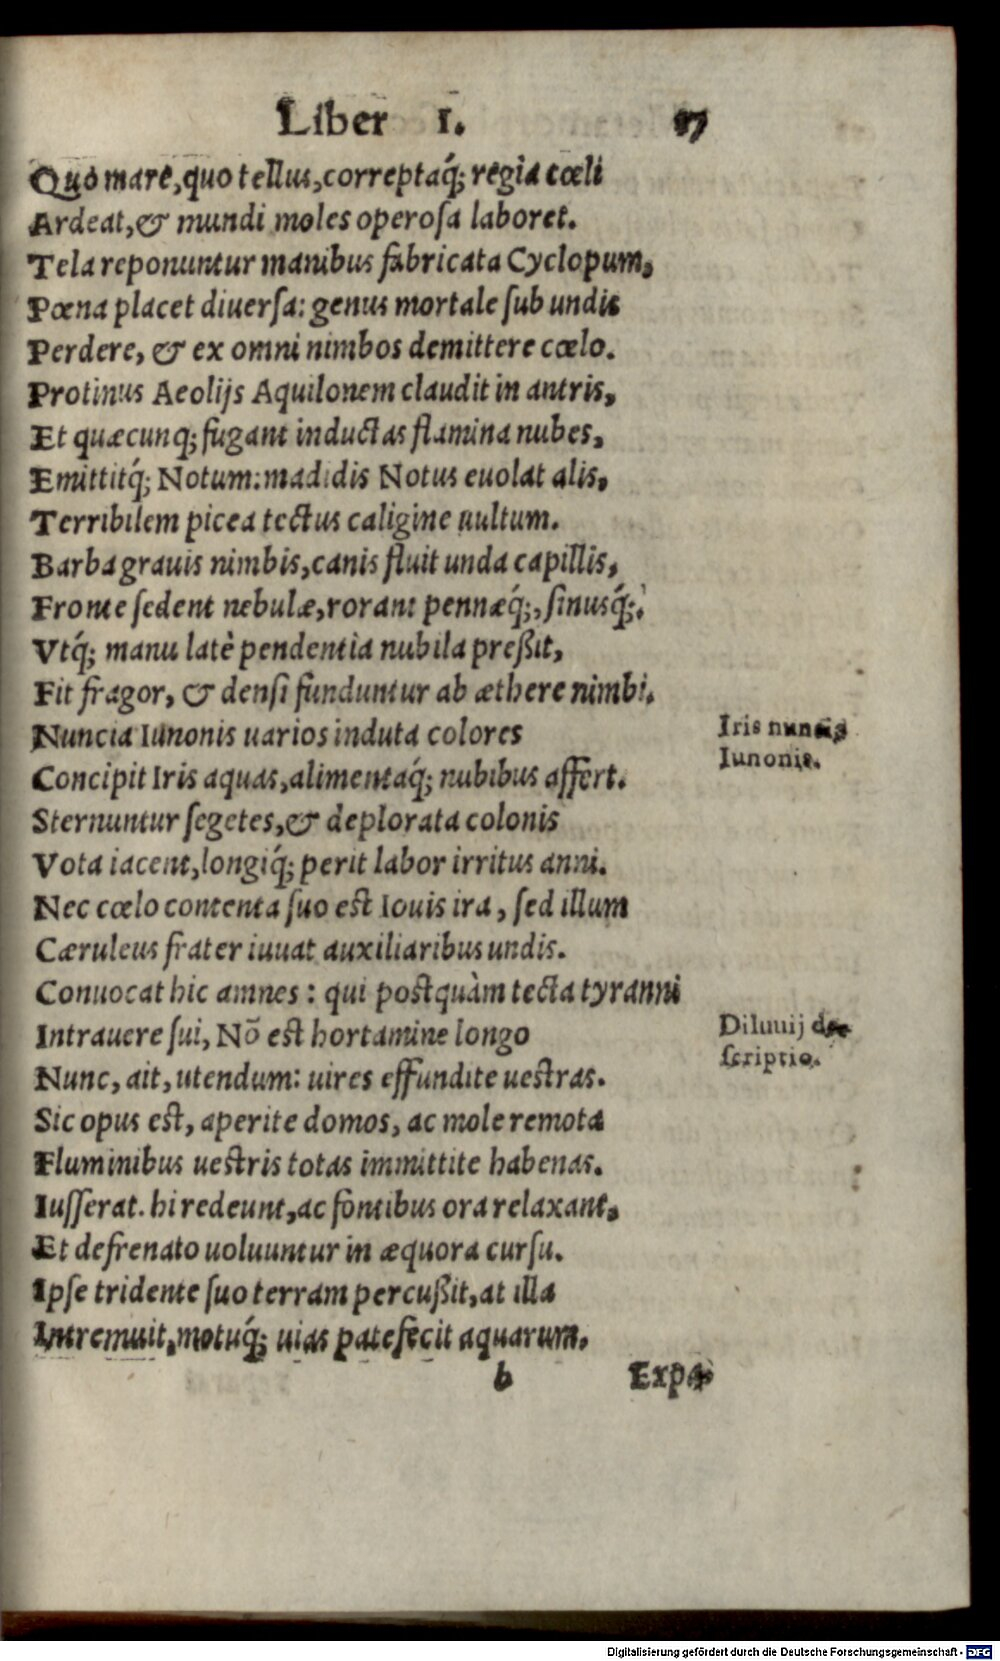 Liber I. 17
Quo mare, quo tellus, correptaq́; regia cœli
Ardeat, & mundi moles operosa laboret.
Tela reponuntur manibus fabricata Cyclopum,
Pœna placet diuersa: genus mortale sub undis
Perdere, & ex omni nimbos demittere cœlo.
Protinus Aeolijs Aquilonem claudit in antris,
Et quæcunq; fugant inductas flamina nubes,
Emittitq́; Notum: madidis Notus euolat alis,
Terribilem picea tectus caligine uultum.
Barba grauis nimbis, canis fluit unda capillis,
Fronte sedent nebulæ, rorant pennæq́;, sinusq́;.
Vtq́; manu latè pendentia nubila preßit,
Fit fragor, & densi funduntur ab æthere nimbi.
Nuncia Iunonis uarios induta colores
Iris nuncia
Concipit Iris aquas, alimentaq́; nubibus affert.
Iunonis.
Sternuntur segetes, & deplorata colonis
Vota iacent, longiq́; perit labor irritus anni.
Nec cœlo contenta suo est Iouis ira, sed illum
Cæruleus frater iuuat auxiliaribus undis.
Conuocat hic amnes: qui postquàm tecta tyranni
Intrauere sui, Nō est hortamine longo
Diluuij de-
scriptio.
Nunc, ait, utendum: uires effundite uestras.
Sic opus est, aperite domos, ac mole remota
Fluminibus uestris totas immittite habenas.
Iusserat. hi redeunt, ac fontibus ora relaxant,
Et defrenato uoluuntur in æquora cursu.
Ipse tridente suo terram percußit, at illa
Intremuit, motuq́; uias patefecit aquarum.
b Expa-
Digitalisierung gefördert durch die Deutsche Forschungsgemeinschaft - DFG